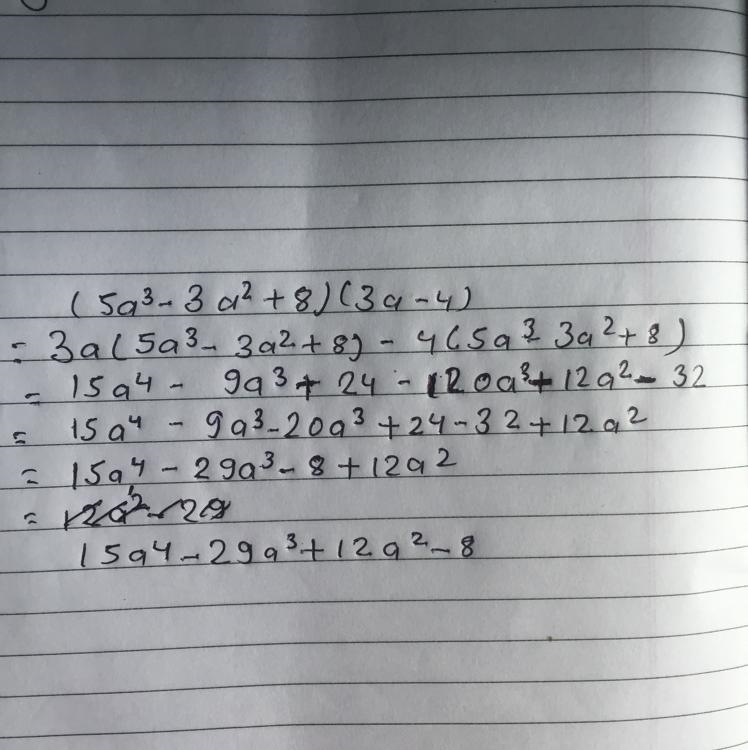 (5a³ - 3a² + 8)(3a - 4)
= 3a(5a³ - 3a² + 8) - 4(5a³ 3a² + 8)
= 15a⁴ - 9a³ + 24 - 20a³ + 12a² - 32
= 15a⁴ - 9a³ - 20a³ + 24 - 32 + 12a²
= 15a⁴ - 29a³ - 8 + 12a²
=
15a⁴ - 29a³ + 12a² - 8